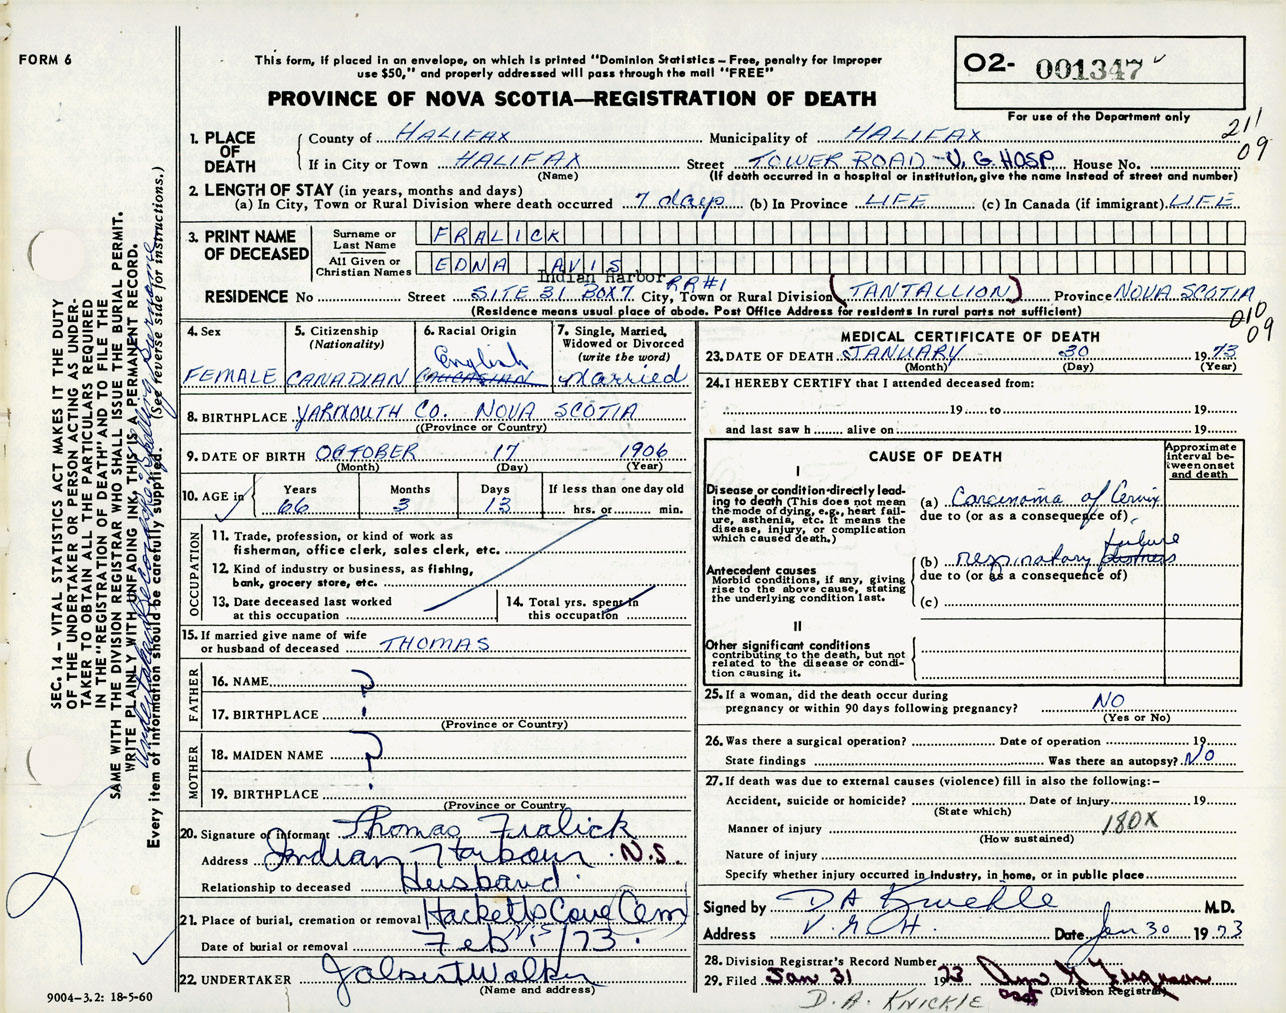 FORM 6
This form, if placed in an envelope, on which is printed "Dominion Statistics – Free, penalty for improper
use $50," and properly addressed will pass through the mail "FREE"
O2- 001347
For use of the Department only
PROVINCE OF NOVA SCOTIA—REGISTRATION OF DEATH
211
09
1. PLACE OF DEATH
County of HALIFAX Municipality of HALIFAX
If in City or Town HALIFAX Street TOWER ROAD - V. G. HOSP House No.
(Name) (If death occurred in a hospital or institution, give the name instead of street and number)
2. LENGTH OF STAY (in years, months and days)
(a) In City, Town or Rural Division where death occurred 7 days (b) In Province LIFE (c) In Canada (if immigrant) LIFE
3. PRINT NAME OF DECEASED
Surname or Last Name FRALICK
All Given or Christian Names EDNA AVIS
Indian Harbor RR#1
RESIDENCE No Street SITE 31 BOX 7 City, Town or Rural Division (TANTALLION) Province NOVA SCOTIA
(Residence means usual place of abode. Post Office Address for residents in rural parts not sufficient)
010
09
4. Sex FEMALE
5. Citizenship (Nationality) CANADIAN
6. Racial Origin English CAUCASIAN
7. Single, Married, Widowed or Divorced (write the word) Married
8. BIRTHPLACE YARMOUTH CO. NOVA SCOTIA
((Province or Country)
9. DATE OF BIRTH OCTOBER 17 1906
(Month) (Day) (Year)
10. AGE in Years 66 Months 3 Days 13 If less than one day old hrs. or min.
OCCUPATION
11. Trade, profession, or kind of work as
fisherman, office clerk, sales clerk, etc.
12. Kind of industry or business, as fishing,
bank, grocery store, etc.
13. Date deceased last worked
at this occupation
14. Total yrs. spent in
this occupation
15. If married give name of wife
or husband of deceased THOMAS
FATHER
16. NAME ?
17. BIRTHPLACE
(Province or Country)
MOTHER
18. MAIDEN NAME ?
19. BIRTHPLACE
(Province or Country
20. Signature of informant Thomas Fralick
Address Indian Harbour N.S.
Relationship to deceased Husband.
21. Place of burial, cremation or removal Hacketts Cove Cem
N.S
Date of burial or removal Feb 1/73.
22. UNDERTAKER J Albert Walker
(Name and address)
MEDICAL CERTIFICATE OF DEATH
23. DATE OF DEATH JANUARY 30 1973
(Month) (Day) (Year)
24. I HEREBY CERTIFY that I attended deceased from:
19 to 19
and last saw h alive on 19
CAUSE OF DEATH
Approximate interval between onset and death
I
Disease or condition directly leading to death (This does not mean the mode of dying, e.g., heart failure, asthenia, etc. It means the disease, injury, or complication which caused death.)
(a) Carcinoma of Cervix
due to (or as a consequence of)
Antecedent causes
Morbid conditions, if any, giving rise to the above cause, stating the underlying condition last.
(b) respiratory distress failure
due to (or as a consequence of)
(c)
II
Other significant conditions
contributing to the death, but not related to the disease or condition causing it.
25. If a woman, did the death occur during
pregnancy or within 90 days following pregnancy? NO
(Yes or No)
26. Was there a surgical operation? Date of operation 19
State findings Was there an autopsy? NO
27. If death was due to external causes (violence) fill in also the following:–
Accident, suicide or homicide? Date of injury 19
(State which)
Manner of injury 180X
(How sustained)
Nature of injury
Specify whether injury occurred in industry, in home, or in public place
Signed by D A Knickle M.D.
Address V.G.H. Date Jan 30 1973
28. Division Registrar's Record Number
29. Filed Jan 31 1973 Ferguson
(Division Registrar)
D. A. KNICKLE
SEC. 14 – VITAL STATISTICS ACT MAKES IT THE DUTY
OF THE UNDERTAKER OR PERSON ACTING AS UNDER-
TAKER TO OBTAIN ALL THE PARTICULARS REQUIRED
IN THE "REGISTRATION OF DEATH" AND TO FILE THE
SAME WITH THE DIVISION REGISTRAR WHO SHALL ISSUE THE BURIAL PERMIT.
WRITE PLAINLY WITH UNFADING INK, THIS IS A PERMANENT RECORD.
Every item of information should be carefully supplied. (See reverse side for instructions.)
9004-3.2: 18-5-60